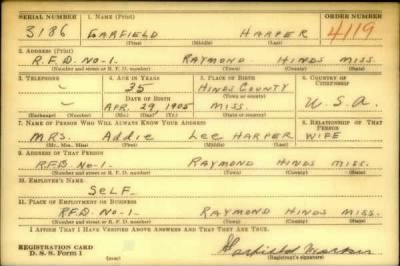 SERIAL NUMBER 1. NAME (Print) ORDER NUMBER
3186 GARFIELD HARPER 4119
(First) (Middle) (Last)
2. ADDRESS (Print)
R.F.D. NO-1. RAYMOND HINDS MISS.
(Number and street or R. F. D. number) (Town) (County) (State)
3. TELEPHONE 4. AGE IN YEARS 5. PLACE OF BIRTH 6. COUNTRY OF CITIZENSHIP
- 35 HINDS COUNTY
DATE OF BIRTH
- APR. 29 1905 MISS. U.S.A.
(Exchange) (Number) (Mo.) (Day) (Yr.) (State or country)
7. NAME OF PERSON WHO WILL ALWAYS KNOW YOUR ADDRESS 8. RELATIONSHIP OF THAT PERSON
MRS. Addie Lee HARPER WIFE
(Mr., Mrs., Miss) (First) (Middle) (Last)
9. ADDRESS OF THAT PERSON
R.F.D. NO-1. RAYMOND HINDS MISS.
(Number and street or R. F. D. number) (Town) (County) (State)
10. EMPLOYER'S NAME
SELF
11. PLACE OF EMPLOYMENT OR BUSINESS
R.F.D. NO-1- RAYMOND HINDS MISS.
(Number and street or R. F. D. number) (Town) (County) (State)
I AFFIRM THAT I HAVE VERIFIED ABOVE ANSWERS AND THAT THEY ARE TRUE.
REGISTRATION CARD
D. S. S. Form 1 (over) (Registrant's signature)